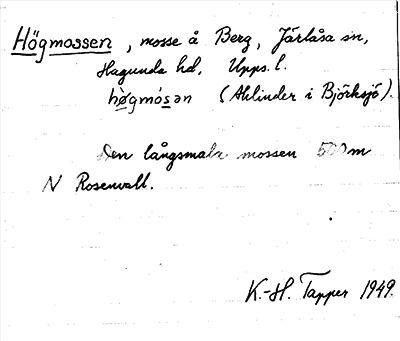 Högmossen, mosse å Berg, Järlåsa sn,
Hagunda hd, Upps. l.
hògmósən (Ahlinder i Björksjö).
Den långsmala mossen 500 m
N Rosenvall.
K.-H. Tapper 1949.